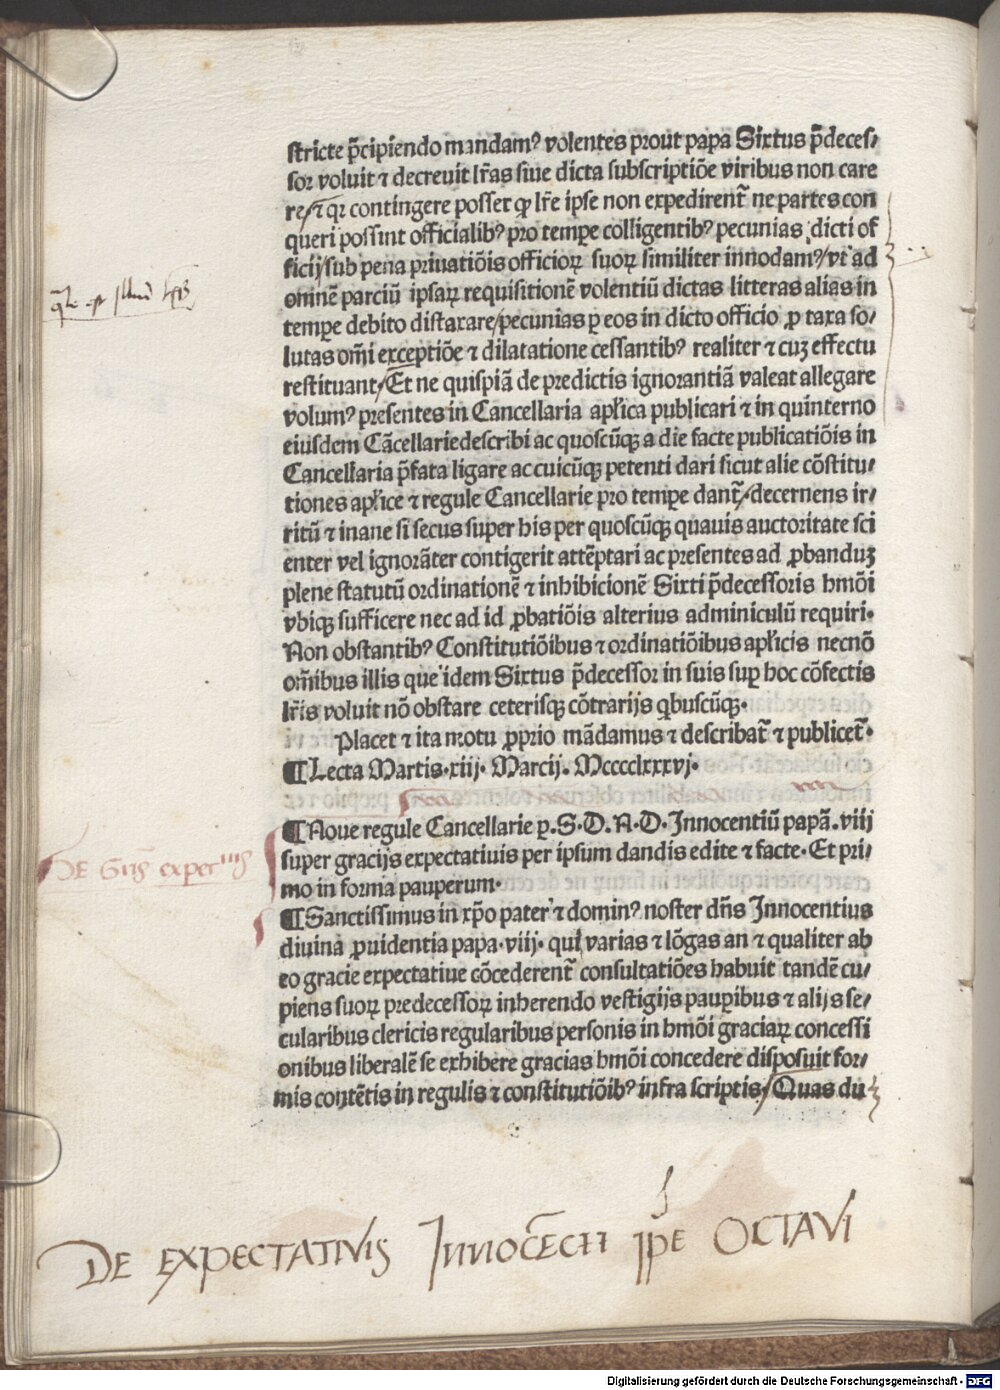 stricte p̃cipiendo mandamꝰ volentes prout papa Sixtus p̃deces⸗
sor voluit ⁊ decreuit lr̃as siue dicta subscriptiõe viribus non care
re/⁊ qꝛ contingere posset ꝙ lr̃e ipse non expedirent̃ ne partes con
queri possint officialibꝰ pro tempe colligentibꝰ pecunias dicti of
ficij/sub pena priuatiõis officioꝝ suoꝝ similiter innodamꝰ/vt ad
omnẽ parciũ ipsaꝝ requisitionẽ volentiũ dictas litteras alias in
tempe debito distaxare/pecunias ꝑ eos in dicto officio ꝓ taxa so⸗
lutas om̃i exceptiõe ⁊ dilatatione cessantibꝰ realiter ⁊ cuꝫ effectu
restituant/Et ne quispiã de predictis ignorantiã valeat allegare
volumꝰ presentes in Cancellaria apl̃ica publicari ⁊ in quinterno
eiusdem Cãcellarie describi ac quoscũqꝫ a die facte publicatiõis in
Cancellaria p̃fata ligare ac cuicũqꝫ petenti dari sicut alie cõstitu⸗
tiones apl̃ice ⁊ regule Cancellarie pro tempe dant̃/decernens ir⸗
ritũ ⁊ inane si secus super his per quoscũqꝫ quauis auctoritate sci
enter vel ignorãter contigerit attẽptari ac presentes ad ꝓbanduꝫ
plene statutũ ordinationẽ ⁊ inhibicionẽ Sixti p̃decessoris hmõi
vbiqꝫ sufficere nec ad id ꝓbatiõis alterius adminiculũ requiri.
Non obstantibꝰ Constitutiõibus ⁊ ordinatiõibus apl̃icis necnõ
om̃ibus illis que idem Sixtus p̃decessor in suis suꝑ hoc cõfectis
lr̃is voluit nõ obstare ceterisqꝫ cõtrarijs qbuscũqꝫ.
Placet ⁊ ita motu ꝓprio mãdamus ⁊ describat̃ ⁊ publicet̃.
¶ Lecta Martis.xiij. Marcij. Mcccclxxxvj.
¶ Noue regule Cancellarie ꝑ.S.D.N.D.Innocentiũ papã.viij
super gracijs expectatiuis per ipsum dandis edite ⁊ facte. Et pri⸗
mo in forma pauperum.
DE Grãs expec
¶ Sanctissimus in xp̃o pater ⁊ dominꝰ noster dñs Innocentius
diuina ꝓuidentia papa.viij. qui varias ⁊ lõgas an ⁊ qualiter ab
eo gracie expectatiue cõcederent̃ consultatiões habuit tandẽ cu⸗
piens suoꝝ predecessoꝝ inherendo vestigijs pauꝑibus ⁊ alijs se⸗
cularibus clericis regularibus personis in hmõi graciaꝝ concessi
onibus liberalẽ se exhibere gracias hmõi concedere disposuit for⸗
mis contẽtis in regulis ⁊ constitutiõibꝰ infra scriptis/Quas du
DE EXPECTATIVIS INNOCẼCII pp̃E OCTAVI
Digitalisierung gefördert durch die Deutsche Forschungsgemeinschaft - DFG